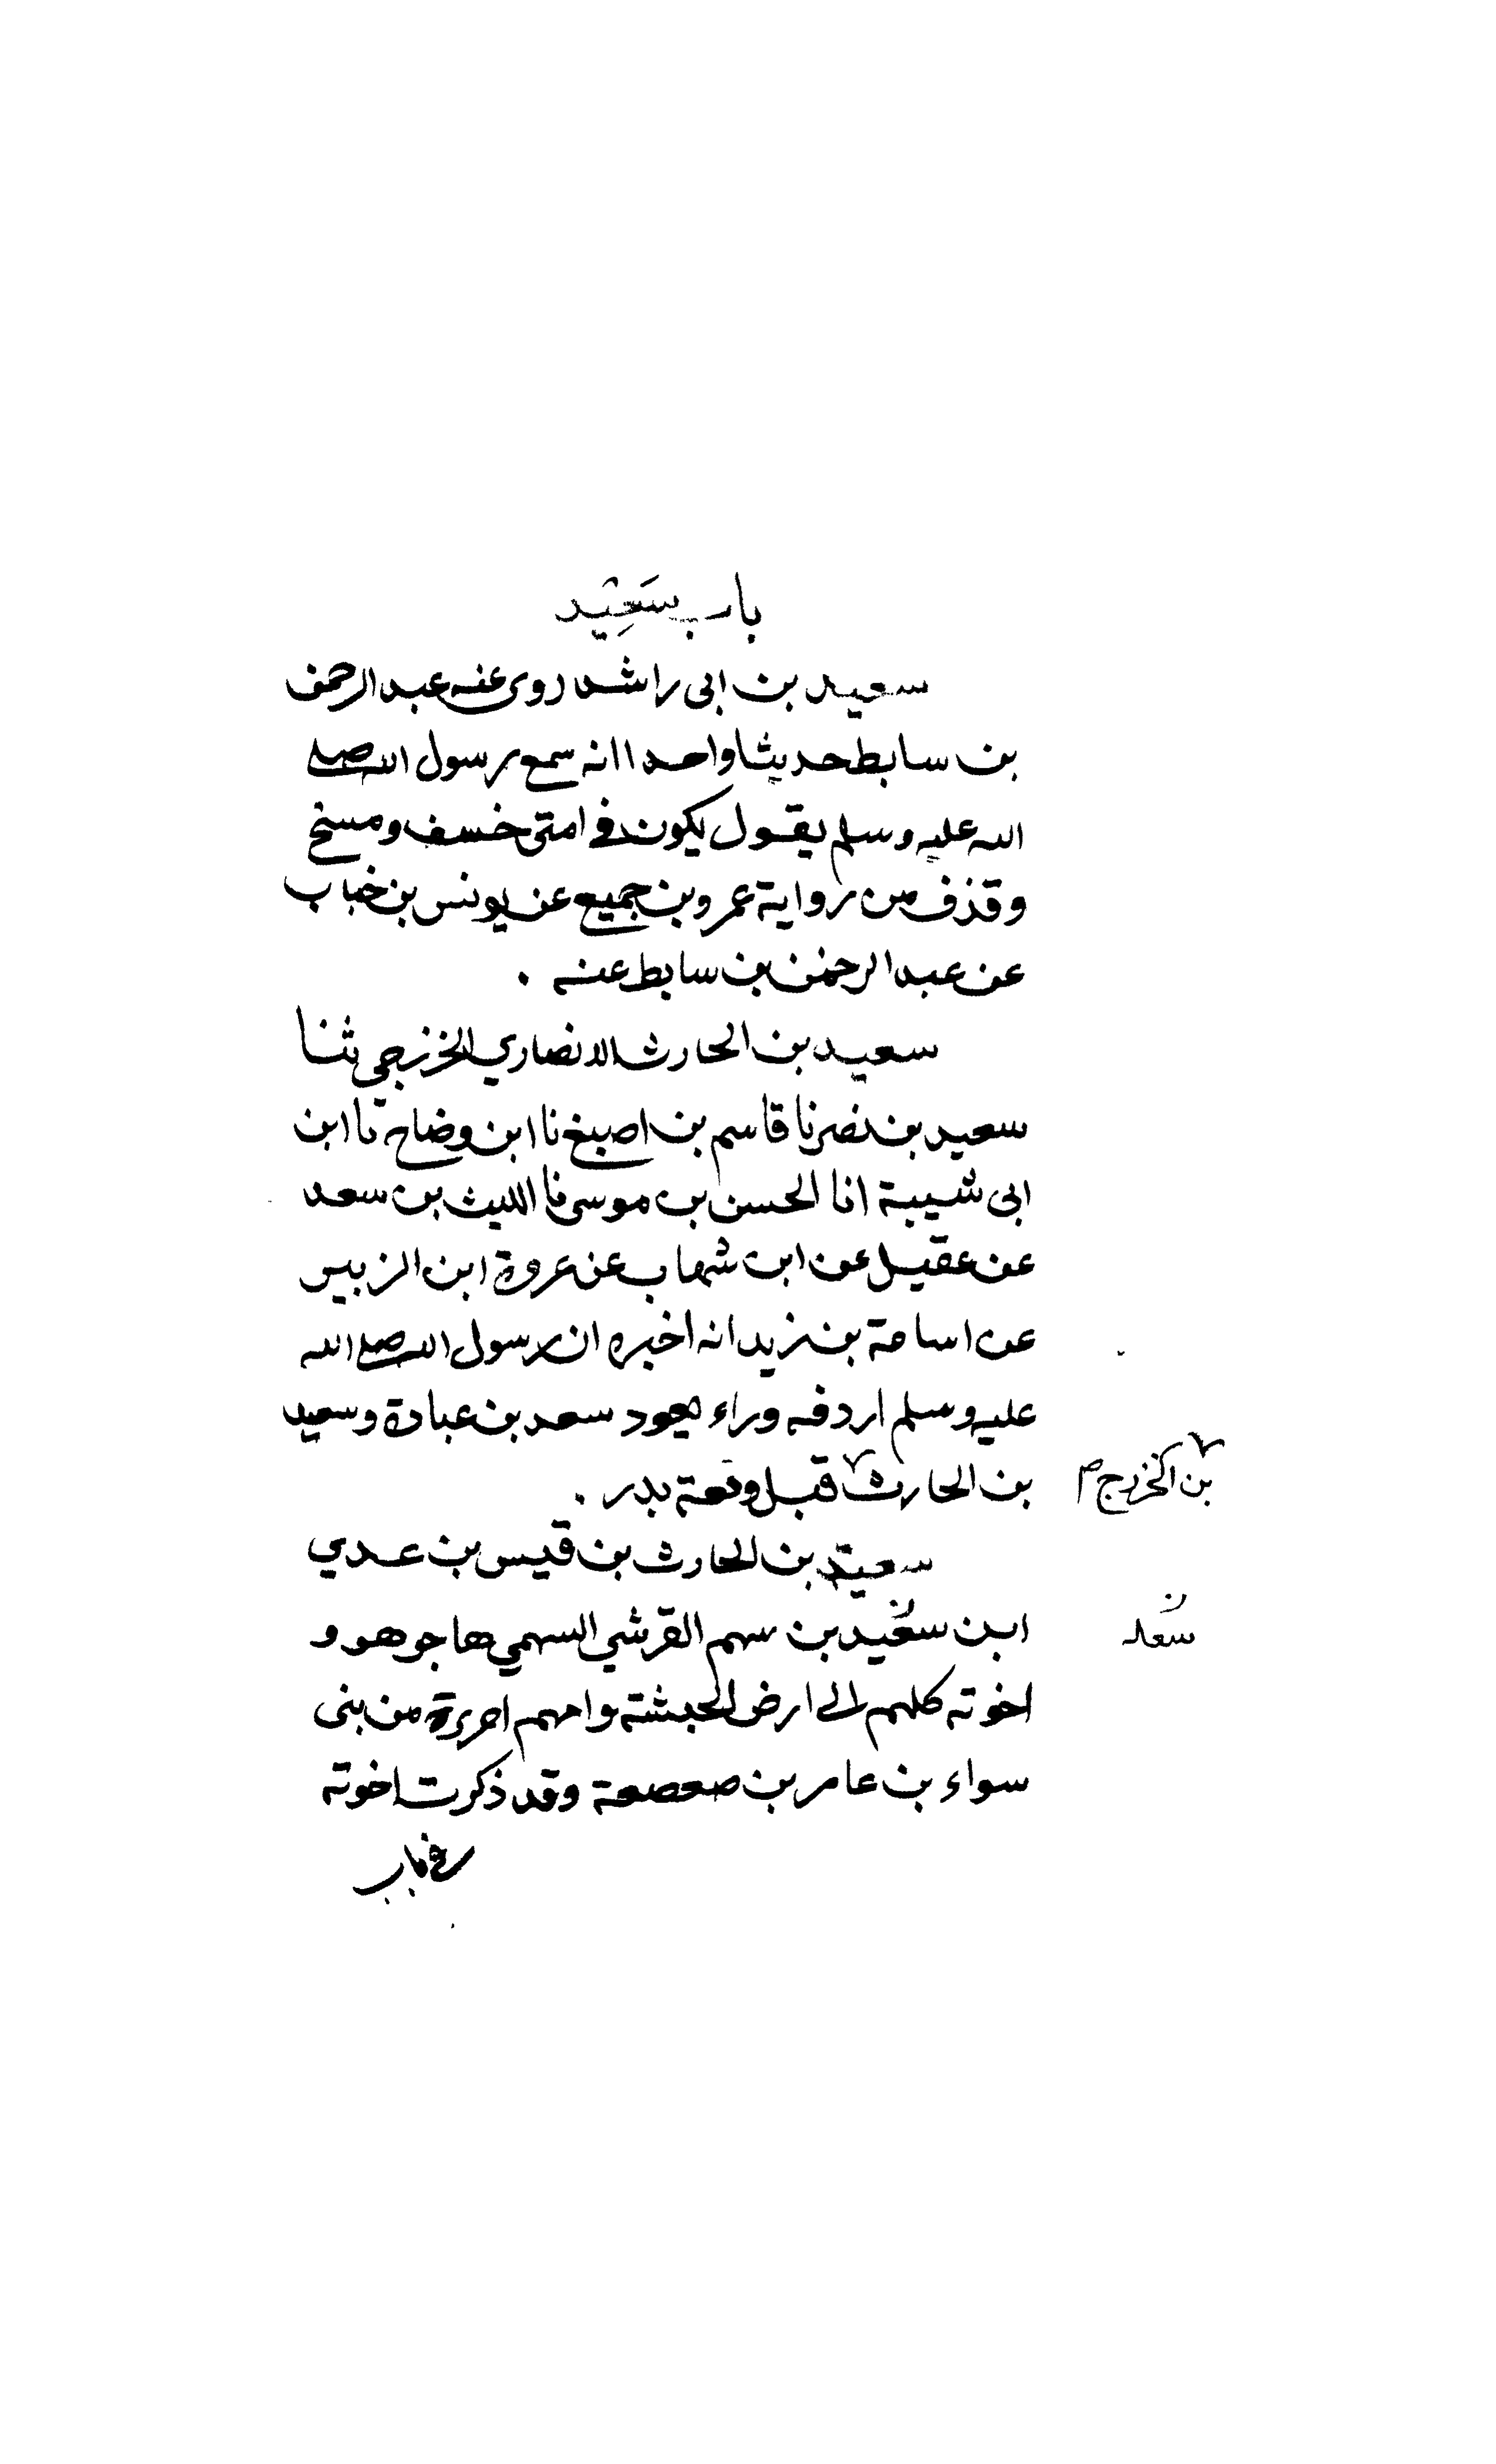 باب سَعِيد
سعيد بن ابى راشد روى عنه عبد الرحمن
بن سابط حديثا واحدا انه سمع رسول الله صلى
الله عليه وسلم يقول يكون فى امتى خسف ومسخ
وقذف من رواية عمرو بن جميع عن يونس بن خباب
عن عبد الرحمن بن سابط عنه .
سعيد بن الحارث الانصاري الخزرجي ثنا
سعيد بن نصر نا قاسم بن اصبغ نا ابن وضاح نا ابن
ابى شيبة انا الحسن بن موسى نا الليث بن سعد
عن عقيل عن ابن شهاب عن عروة ابن الزبير
عن اسامة بن زيد انه اخبره ان رسول الله صلى الله
عليه وسلم اردفه وراءه يعود سعد بن عبادة وسعيد
بن الحارث قبل وقعة بدر .
بن الخزرج م
سعيد بن الحارث بن قيس بن عدي
ابن سعيد بن سهم القرشي السهمي هاجر هو و
سُعد
اخوته كلهم الى ارض الحبشة وامهم امرة من بنى
سواء بن عامر بن صعصعة وقد ذكرت اخوته
فى باب